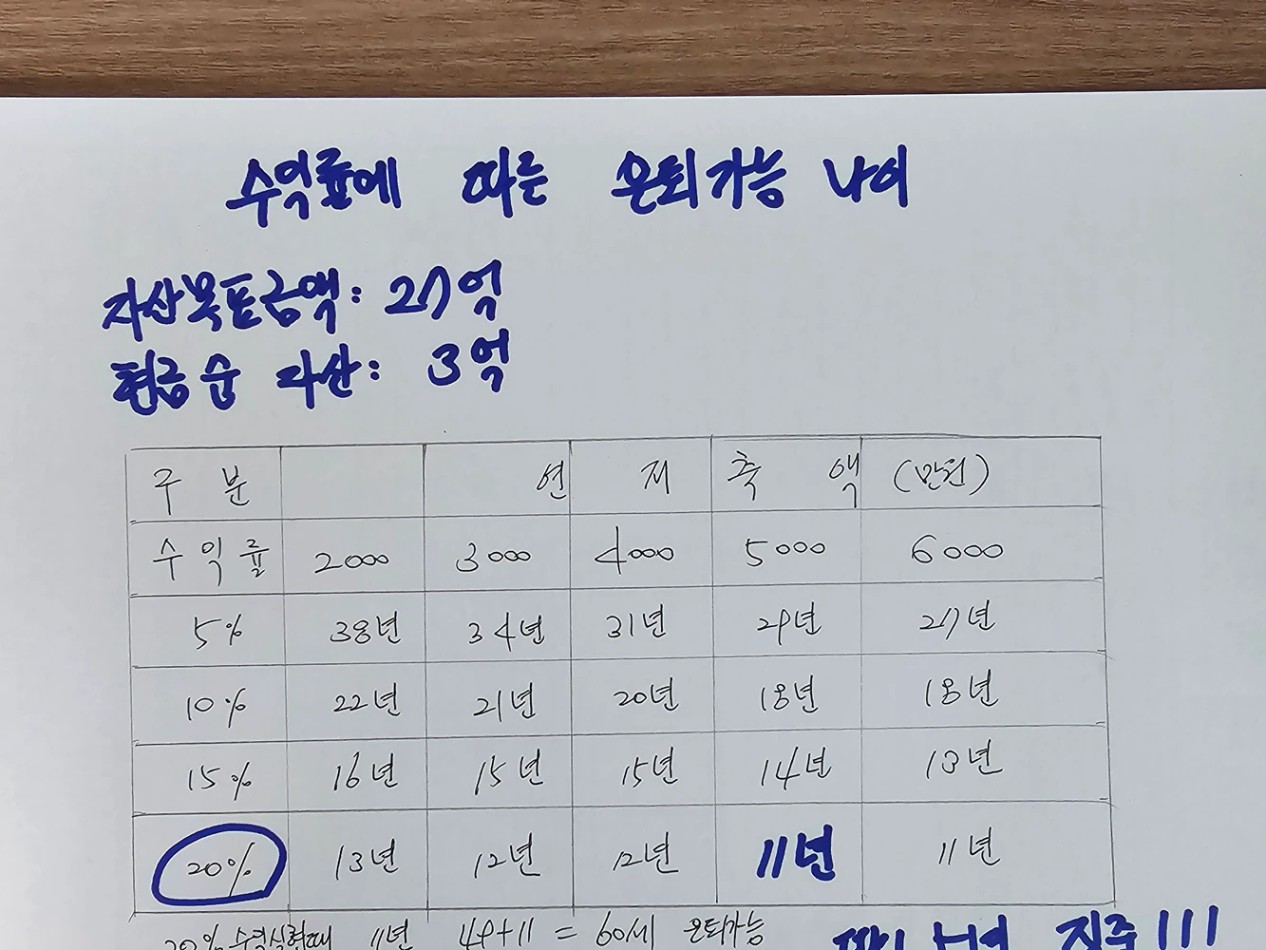 수익률에 따른 은퇴가능 나이
자산목표금액: 27억
현금순 자산: 3억
구 분 연 저 축 액 (만원)
수익률 2000 3000 4000 5000 6000
5% 38년 34년 31년 29년 27년
10% 22년 21년 20년 18년 18년
15% 16년 15년 15년 14년 13년
20% 13년 12년 12년 11년 11년
20% 수익실현때 11년 49+11 = 60세 은퇴가능